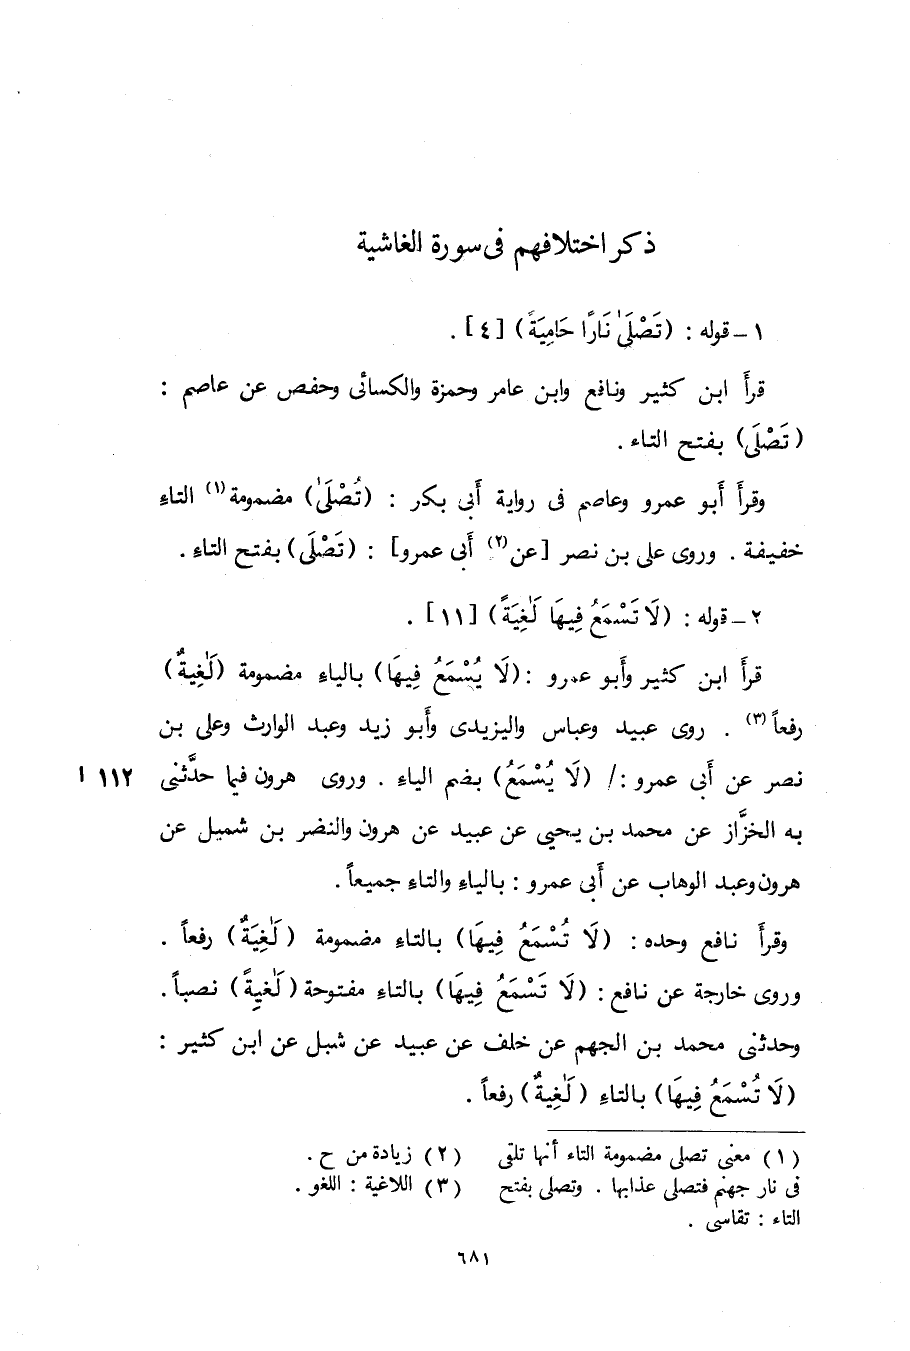 ذكر اختلافهم فى سورة الغاشية
١ ــ قوله : (تَصْلَىٰ نَارًا حَامِيَةً) [٤] .
قرأ ابن كثير ونافع وابن عامر وحمزة والكسائى وحفص عن عاصم :
(تَصْلَى) بفتح التاء .
وقرأ أبو عمرو وعاصم فى رواية أبى بكر : (تُصْلَىٰ) مضمومة(١) التاء
خفيفة . وروى على بن نصر [عن(٢) أبى عمرو] : (تَصْلَى) بفتح التاء .
٢ ــ قوله : (لَا تَسْمَعُ فِيهَا لَٰغِيَةً) [١١] .
قرأ ابن كثير وأبو عمرو : (لَا يُسْمَعُ فِيهَا) بالياء مضمومة (لَٰغِيةٌ)
رفعاً(٣) . روى عبيد وعباس واليزيدى وأبو زيد وعبد الوارث وعلى بن
نصر عن أبى عمرو :/ (لَا يُسْمَعُ) بضم الياء . وروى هرون فيما حدَّثنى ١١٢ ا
به الخزَّاز عن محمد بن يحيى عن عبيد عن هرون والنضر بن شميل عن
هرون وعبد الوهاب عن أبى عمرو : بالياء والتاء جميعاً .
وقرأ نافع وحده : (لَا تُسْمَعُ فِيهَا) بالتاء مضمومة (لَٰغِيَةٌ) رفعاً .
وروى خارجة عن نافع : (لَا تَسْمَعُ فِيهَا) بالتاء مفتوحة (لَٰغيةً) نصباً .
وحدثنى محمد بن الجهم عن خلف عن عبيد عن شبل عن ابن كثير :
(لَا تُسْمَعُ فِيهَا) بالتاء (لَٰغِيةٌ) رفعاً .
(١) معنى تصلى مضمومة التاء أنها تلقى
فى نار جهنم فتصلى عذابها . وتصلى بفتح
التاء : تقاسى .
(٢) زيادة من ح .
(٣) اللاغية : اللغو .
٦٨١